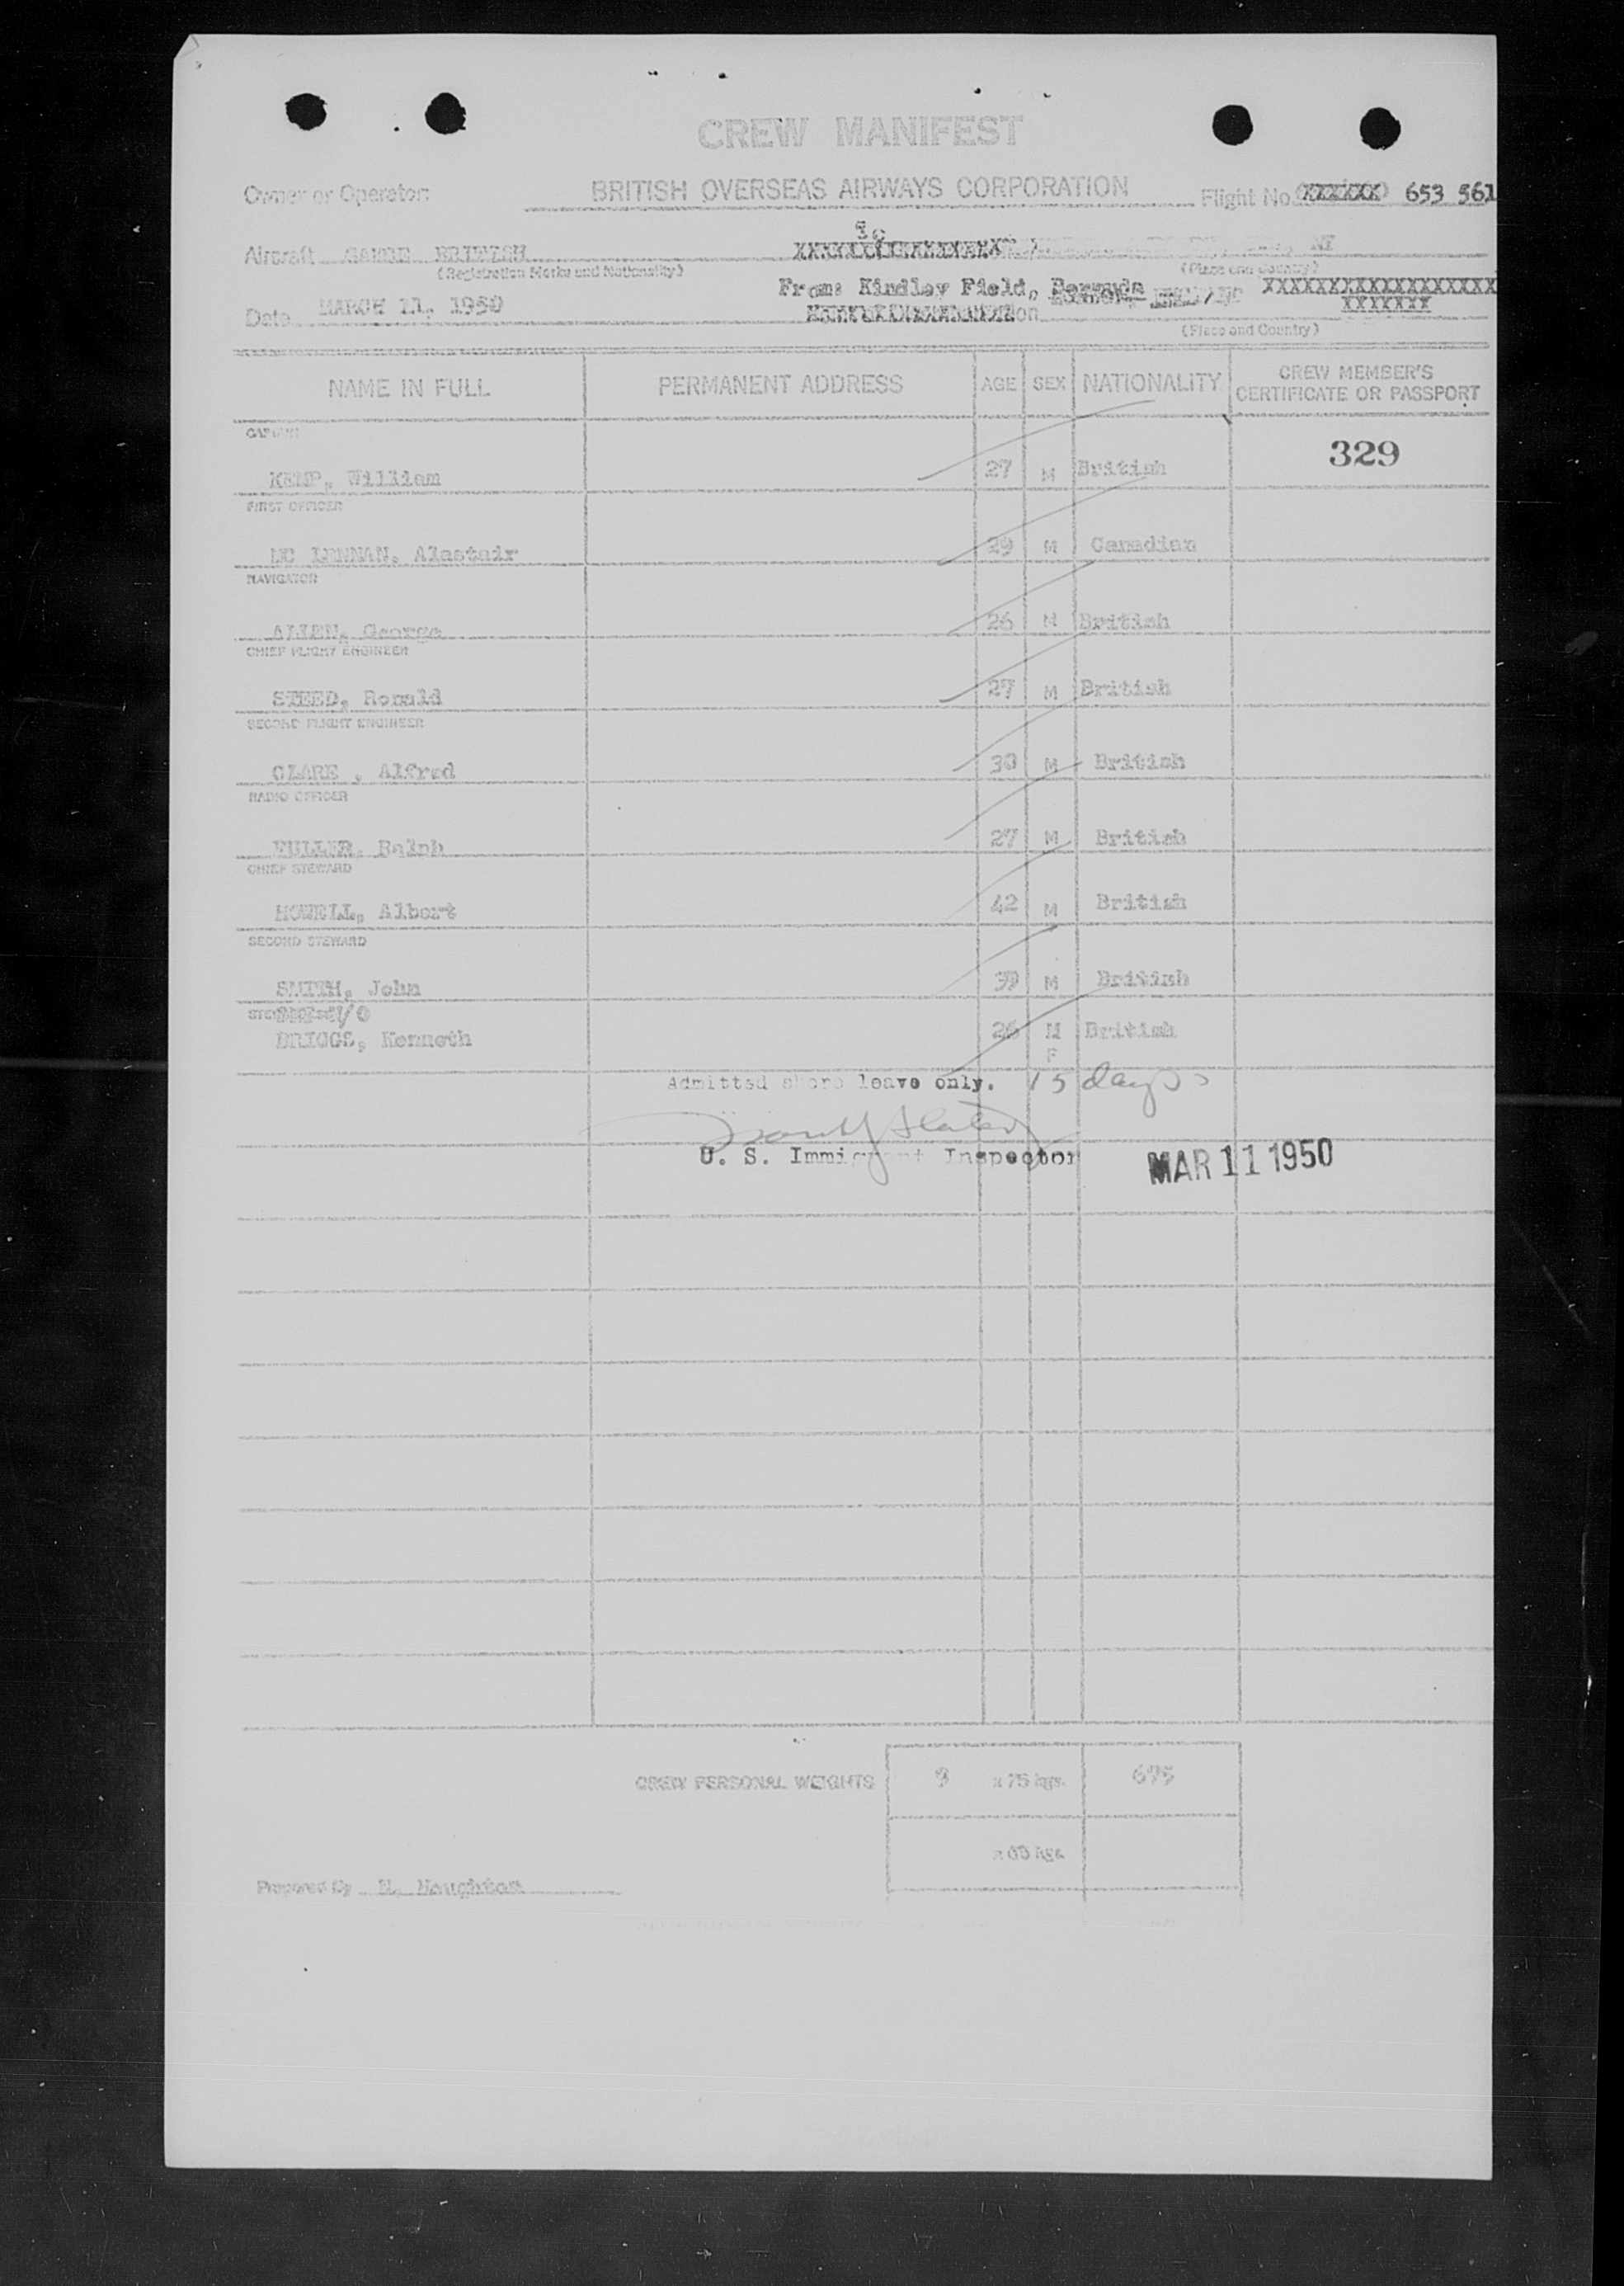 CREW MANIFEST
Owner or Operator: BRITISH OVERSEAS AIRWAYS CORPORATION Flight No. XXXXXX 653 561
Aircraft BRITISH To
(Registration Marks and Nationality) (Place and Country)
Date MARCH 11, 1950 From: Kindley Field, Bermuda
(Place and Country)
NAME IN FULL PERMANENT ADDRESS AGE SEX NATIONALITY CREW MEMBER'S CERTIFICATE OR PASSPORT
CAPTAIN
329
KEMP, William 27 M British
FIRST OFFICER
MC LENNAN, Alastair 29 M Canadian
NAVIGATOR
ALLEN, George 26 M British
CHIEF FLIGHT ENGINEER
STEED, Ronald 27 M British
SECOND FLIGHT ENGINEER
CLARE , Alfred 30 M British
RADIO OFFICER
FULLER, Ralph 27 M British
CHIEF STEWARD
HOWELL, Albert 42 M British
SECOND STEWARD
SMITH, John 39 M British
BRIGGS, Kenneth 26 M British
F
Admitted shore leave only. 15 days
U. S. Immigrant Inspector MAR 11 1950
CREW PERSONAL WEIGHTS 9 x 75 kgs. 675
x 65 kgs.
Prepared By N. Naughton